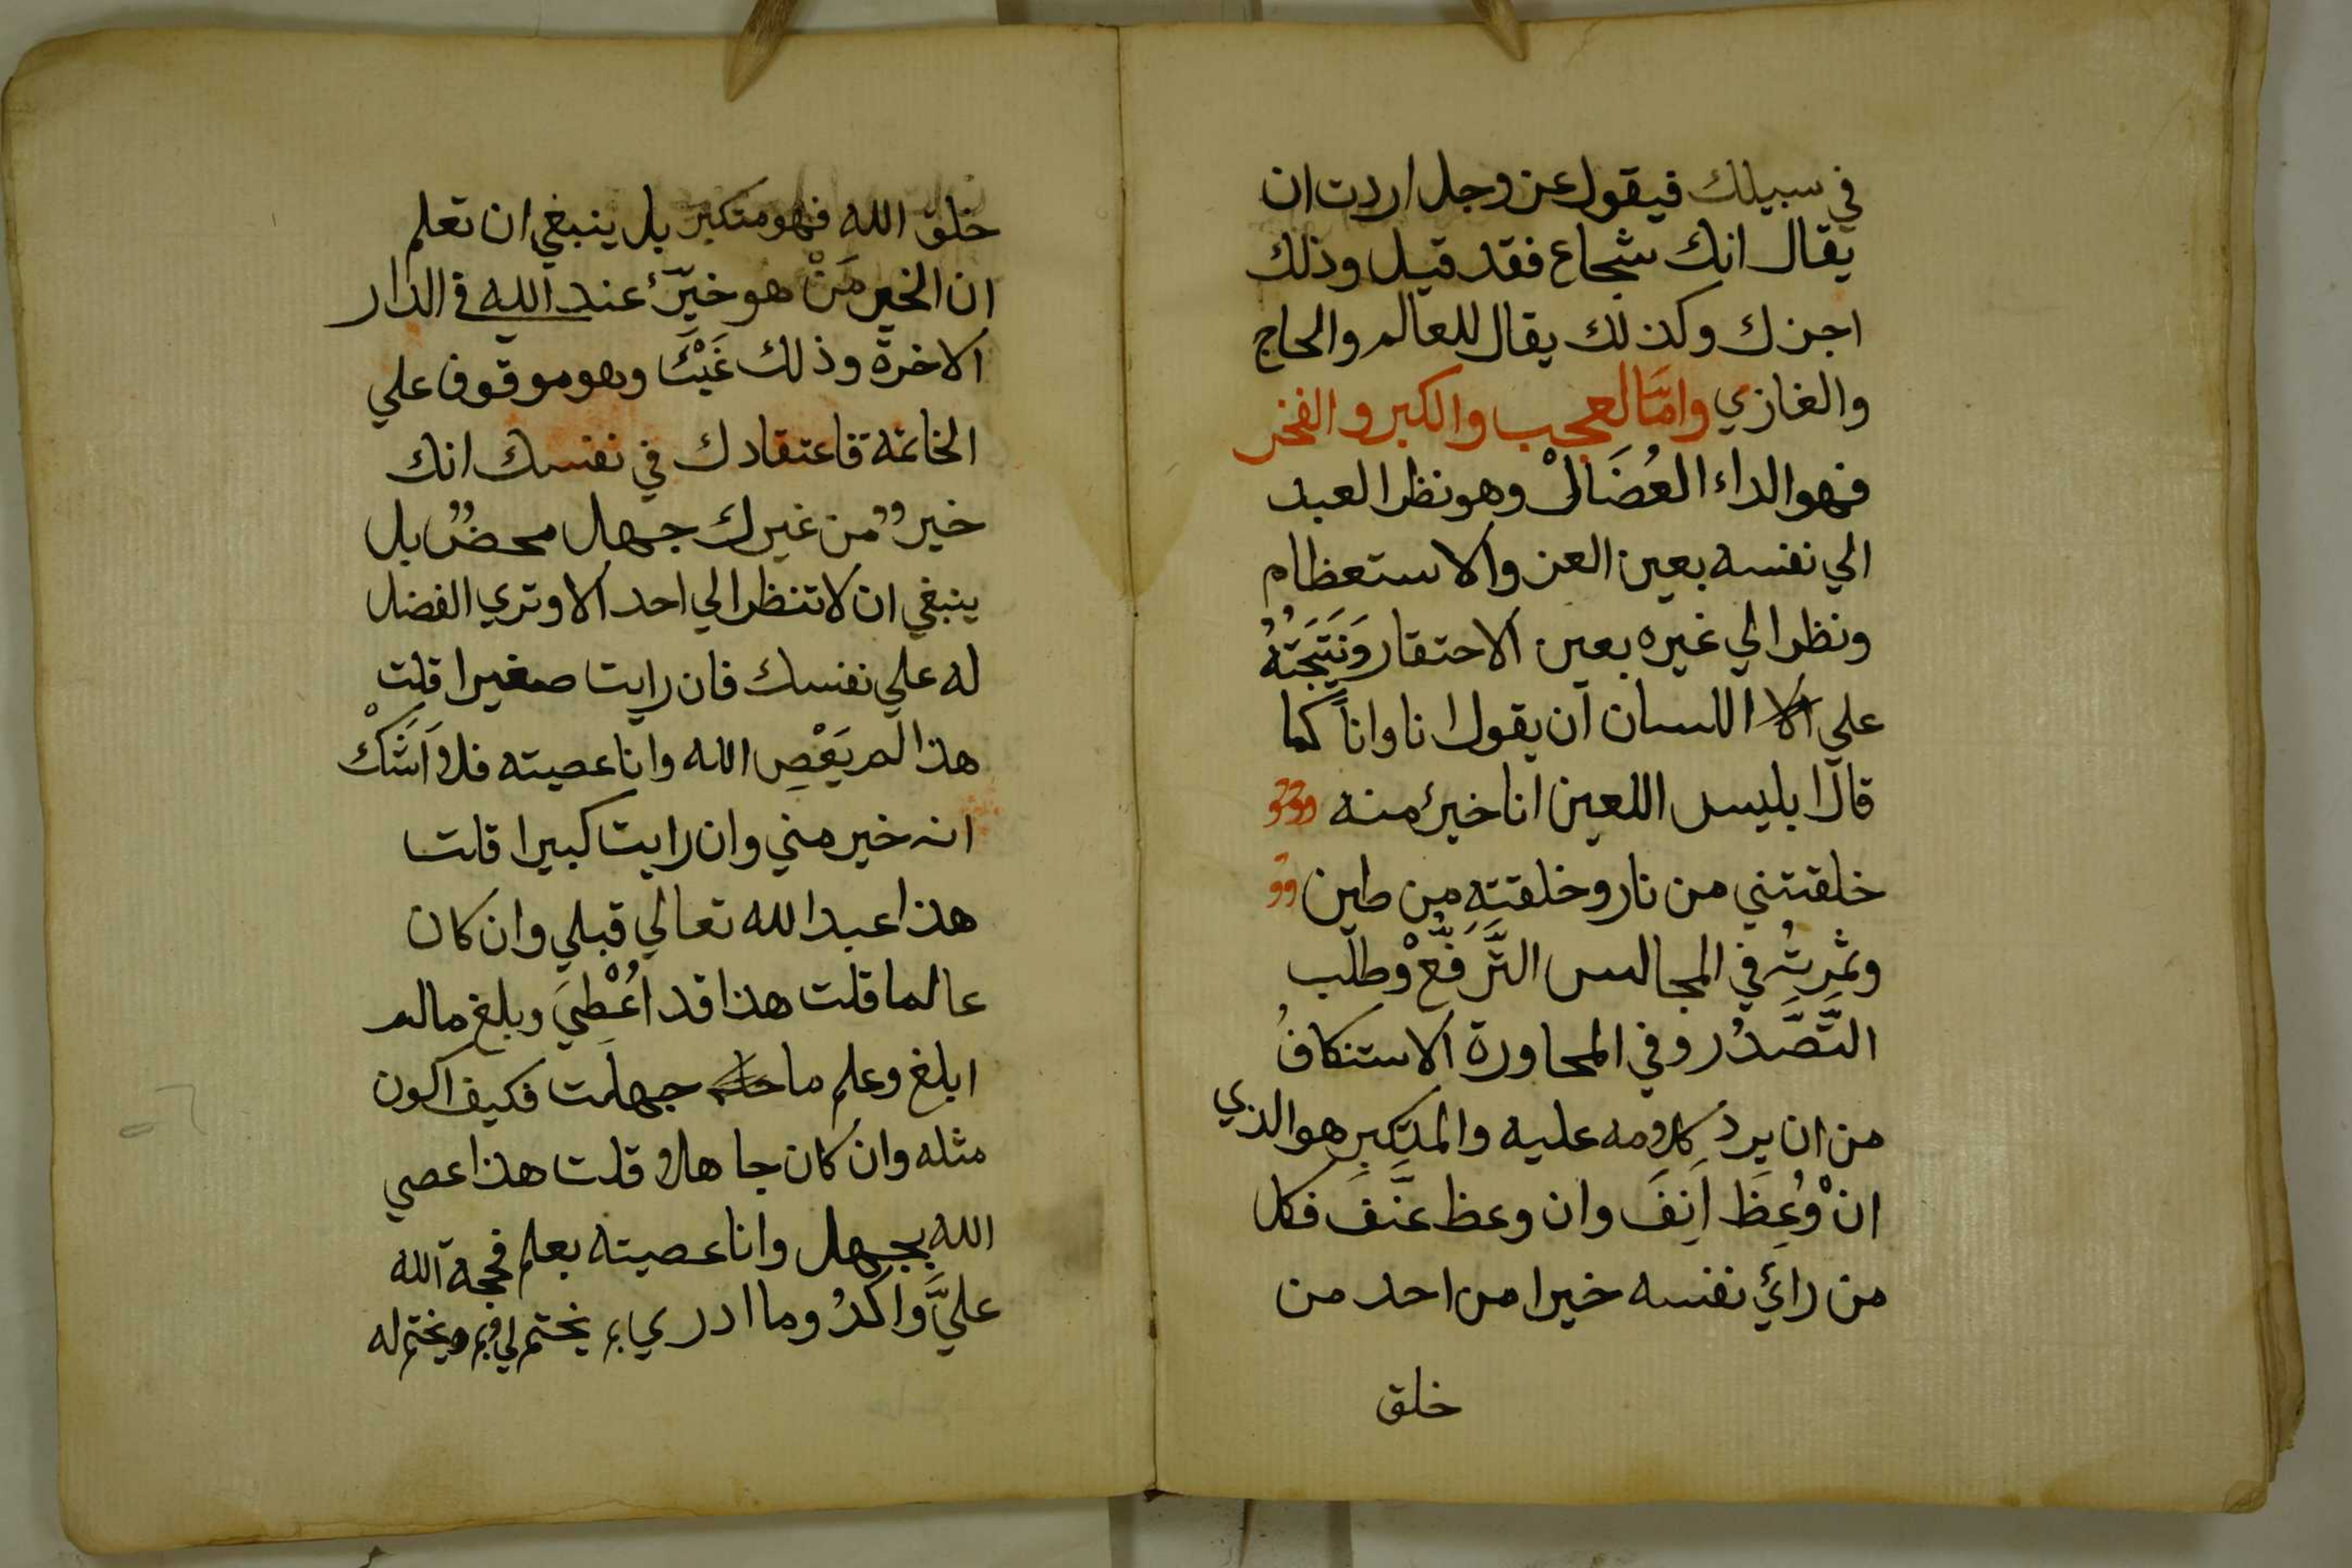 في سبيلك فيقول عز وجل اردت ان
يقال انك شجاع فقد قيل وذلك
اجرك وكذلك يقال للعالم والحاج
والغازي وامّا العجب والكبر و الفخر
فهو الداء العُضَالْ وهو نظر العبد
الي نفسه بعين العز والاستعظام
ونظر الي غيره بعين الاحتقار وَنَتَيجَتُهُ
علي اللسان ان يقول انا وانا كما
قال ابليس اللعين انا خيرٌ منه
خلقتني من نار وخلقته من طين
وثمرته في المجالس التَّرَفُّعْ وطلب
التَّصَّدُر وفي المحاورة الاستنكافُ
من ان يرد كلامه عليه والمتكبر هو الذي
انْ وُعِظَ اَنِفَ وان وعظ عَنَّفَ فكل
من رائي نفسه خيرا من احد من
خلق
خلق الله فهو متكبر بل ينبغي ان تعلم
ان الخير مَنْ هو خيرٌ عند الله في الدار
الاخرة وذلك غَيْبٌ وهو موقوف علي
الخاتمة فاعتقادك في نفسك انك
خيرٌ من غيرك جهل محضٌ بل
ينبغي ان لا تنظر الي احد الا وتري الفضل
له علي نفسك فان رايت صغيرا قلت
هذا لم يَعْصِ الله وانا عصيته فلا اَشَكْ
انه خير مني وان رايت كبيرا قلت
هذا عبد الله تعالي قبلي وان كان
عالما قلت هذا قد اُعْطِيَ وبلغ مالم
ابلغ وعلم ما جهلت فكيف اكون
مثله وان كان جاهلا قلت هذا عصي
الله بجهل وانا عصيته بعلم فحجة الله
عليَّ واكدُ وما ادري بم يختم لي وبم يختم له